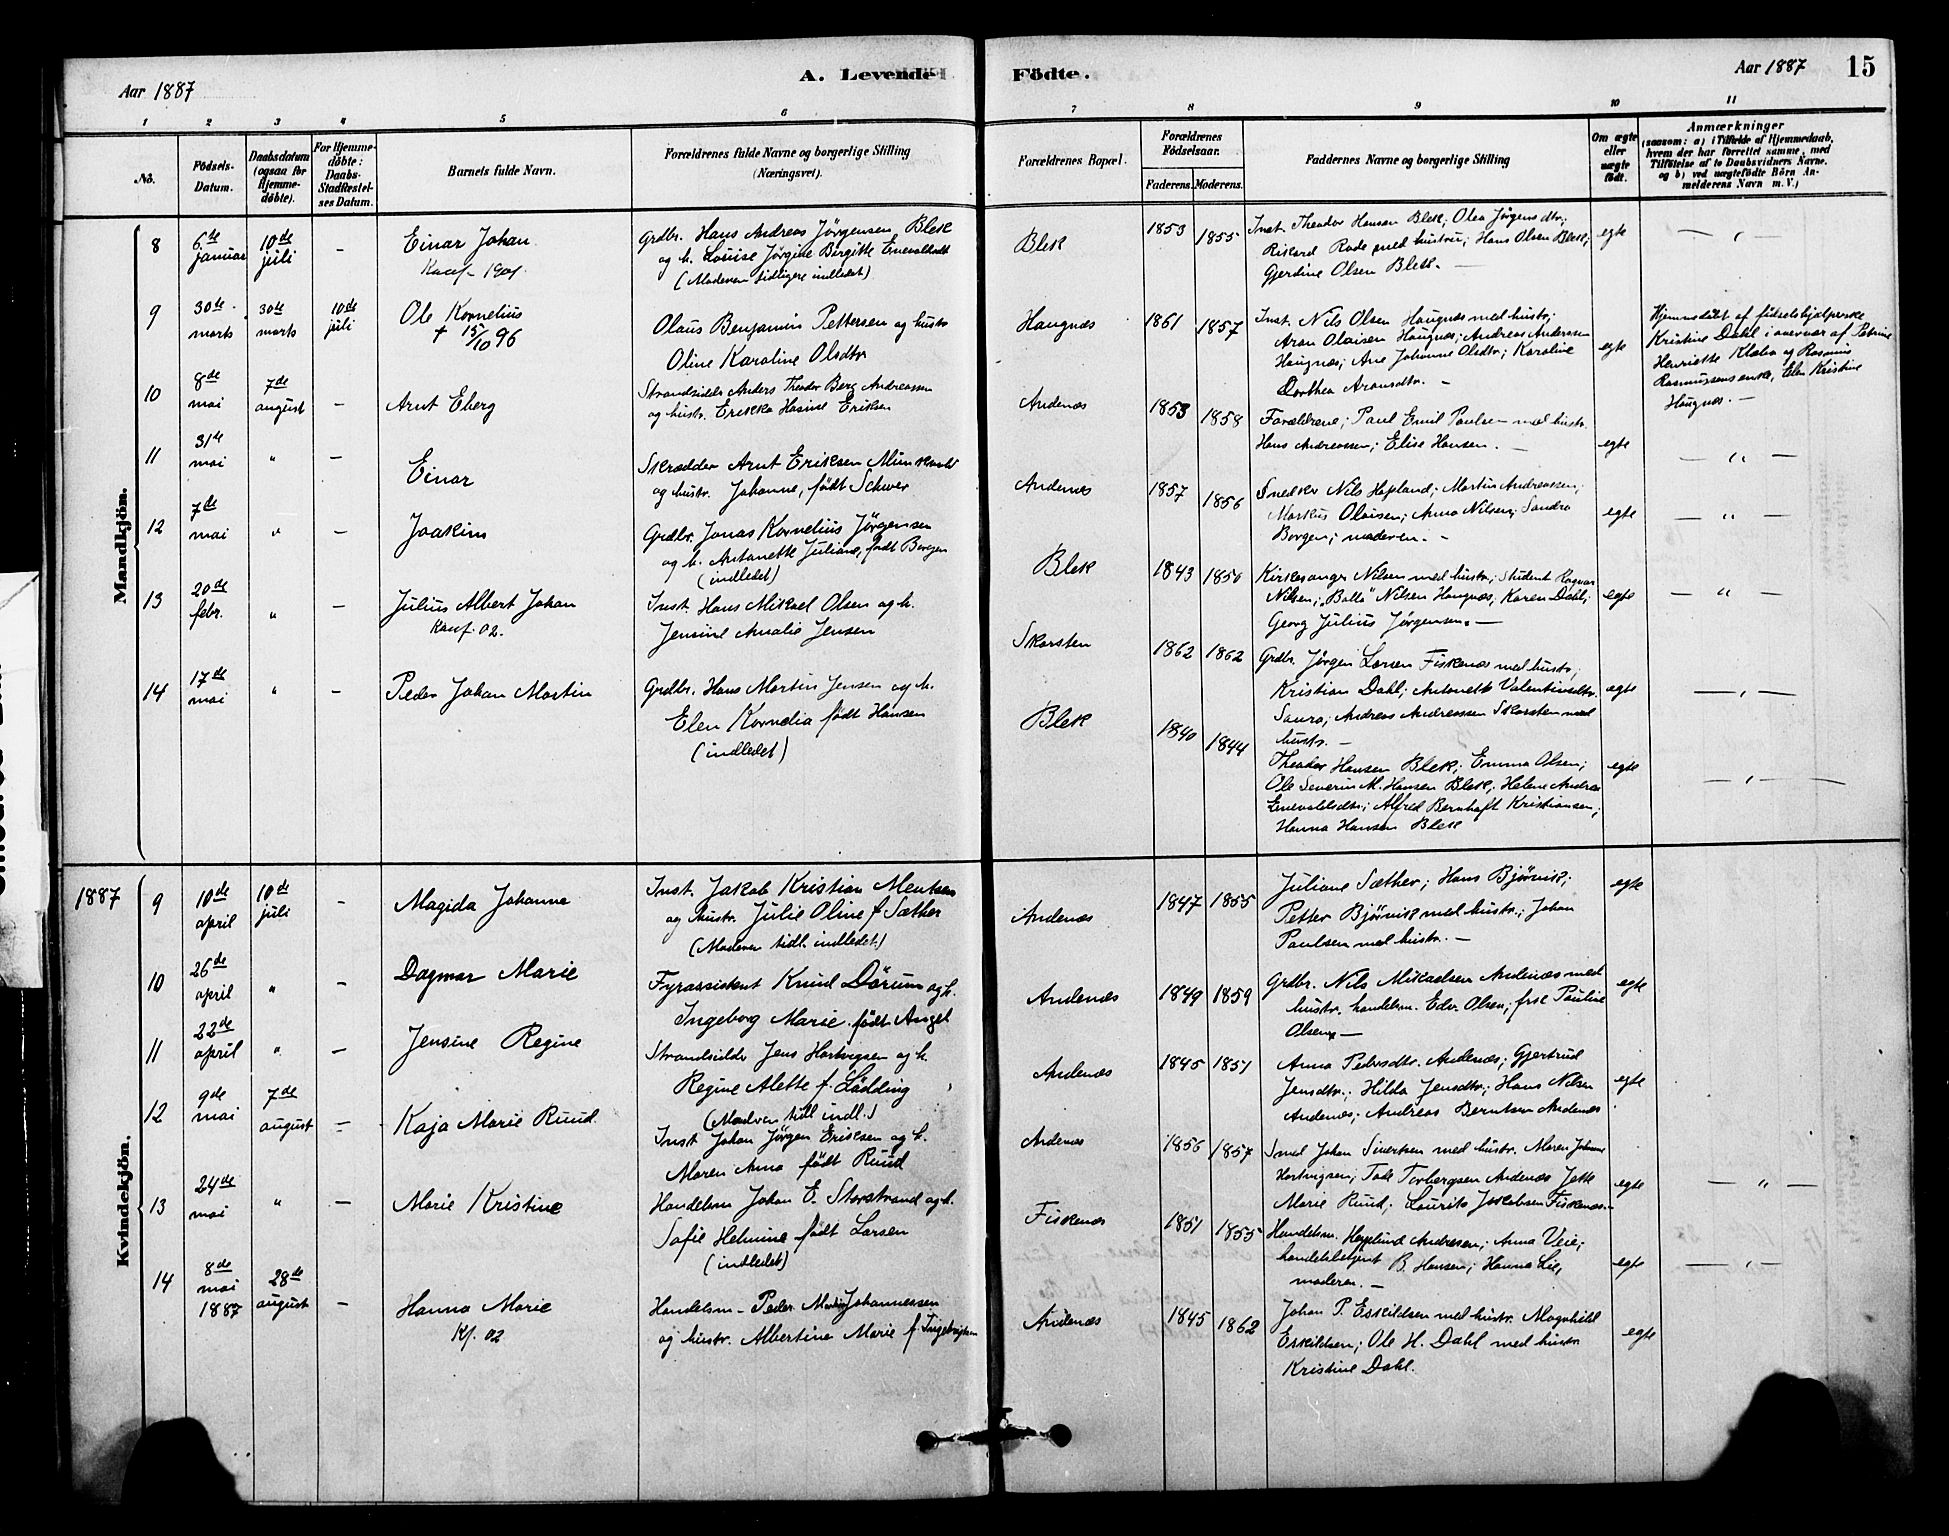 A. Levende Födte.
Aar 1887
Aar 1887 15
1 2 3 4 5 6 7 8 9 10 11
No.
Födsels-
Datum.
Daabsdatum
(ogsaa for
Hjemme-
döbte).
For Hjemme-
döbte:
Daabs-
Stadfæstel-
ses Datum.
Barnets fulde Navn.
Forældrenes fulde Navne og borgerlige Stilling
(Næringsvei).
Forældrenes Bopæl.
Forældrenes
Födselsaar.
Faderens. Moderens.
Faddernes Navne og borgerlige Stilling
Om ægte
eller
uægte
født.
Anmærkninger
(saasom: a) i Tilfælde af Hjemmedaab,
hvem der har forrettet samme, med
Tilföielse af to Daabsvidners Navne.
og b) ved uægtefödte Börn An-
melderens Navn m. V.)
Mandkjön.
8
6.te
januar
10de
juli
–
Einar Johan
Konf. 1901.
Grdbr. Hans Andreas Jørgensen, Blek
og h. Lovise Jørgine Birgitte Enevoldsdt
(Moderen tidligere indledet)
Blek
1853 1855
Inst. Theodor Hansen Blek; Olea Jørgensdtr;
Rikard Rode med hustru; Hans Olsen Blek;
Gjerdine Olsen Blek. —
egte
— " —
9
30de
marts
30de
marts
10de
juli
Ole Kornelius
+ 15/10 96
Olaus Benjamin Pettersen og hustr
Oline Karoline Olsdtr
Haugnæs
1861 1857
Inst. Nils Olsen Haugnæs med hustr;
Aron Olaisen Haugnæs; Andreas Andersen
Haugnæs; Ane Johanne Olsdtr; Karoline
Dorthea Aronsdtr. –
egte
Hjemmedøbt af fødselshjælperske
Kristine Dahl i overvær af Petrine
Henriette Klæbo og Rasmus
Rasmussens enke, Elen Kristine
Haugnæs. —
10
8de
mai
7de
august
–
Arnt Eberg
Strandsidder Anders Theodor Berg Andreassen
og hustr. Erikka Hasine Eriksen
Andenæs
1853 1858
Forældrene; Paul Emil Paulsen med hustr.
Hans Andreassen; Elise Hansen. —
egte
— " —
11
31te
mai
"
–
Einar
Skrædder Arnt Eriksen Munkvold
og hustr. Johanne, født Schwer
Andenæs
1857 1856
Snedker Nils Hopland; Martin Andreassen;
Markus Olaisen; Anna Nilsen; Sandra
Borgen; moderen. –
egte
— " —
12
7de
mai
"
–
Joakim
Grdbr. Jonas Kornelius Jørgensen
og h. Antonette Juliane, født Borgen
(indledet)
Blek
1843 1850
Kirkesanger Nilsen med hustr; Student Ragnar
Nilsen; "Balla" Nilsen Haugnæs; Karen Dahl;
Georg Julius Jørgensen. —
egte
— " —
13
20de
febr.
"
–
Julius Albert Johan
Konf. 02.
Inst. Hans Mikael Olsen og h.
Jensine Amalie Jensen
Skarsten
1862 1862
Grdbr. Jørgen Larsen Fiskenæs med hustr;
Kristian Dahl; Antonette Valentinsdtr.
Saura; Andreas Andreassen Skarsten med
hustr. —
egte
— " —
14
17de
mai
"
–
Peder Johan Martin
Grdbr. Hans Martin Jensen og h.
Elen Kornelia født Hansen
(indledet)
Blek
1840 1844
Theodor Hansen Blek; Emma Olsen;
Ole Severin M. Hansen Blek; Helene Andrea
Enevoldsdtr; Alfred Bernhoft Kristiansen;
Hanna Hansen Blek
egte
— " —
1887
Kvindekjön.
9
10de
april
10de
juli
–
Magida Johanne
Inst. Jakob Kristian Mentsen
og hustr. Julie Oline f. Sæther
(Moderen tidl. indledet.)
Andenæs
1847 1855
Juliane Sæther; Hans Bjørvik;
Petter Bjørvik med hustr.; Johan
Paulsen med hustr. —
egte
10
26de
april
"
–
Dagmar Marie
Fyrassistent Knud Dörum og h.
Ingeborg Marie, født Angel
Andenæs
1849 1859
Grdbr. Nils Mikaelsen Andenæs med
hustr. handelsm. Edv. Olsen; frk. Pauline
Olsen —
egte
11
22de
april
"
–
Jensine Regine
Strandsidder Jens Hartvigsen og h.
Regine Alette f. Lødding
(Moderen tidl. indl.)
Andenæs
1845 1851
Anna Pedersdtr. Andenæs; Gjertrud
Jensdtr; Hilda Jensdtr; Hans Nilsen
Andenæs; Andreas Berntsen Andenæs
egte
12
9de
mai
7de
august
–
Kaja Marie Ruud
Inst. Johan Jørgen Eriksen og h.
Maren Anna født Ruud
Andenæs
1856 1857
Smed Johan Sivertsen med hustr. Maren Johanne
Hartvigsen; Tale Torbergsen Andenæs Jette
Marie Ruud; Laurits Jakobsen Fiskenæs. –
egte
— " —
13
24de
mai
"
–
Marie Kristine
Handelsm Johan E. Storstrand og h.
Sofie Helmine født Larsen
(indledet)
Fiskenæs
1851 1855
Handelsm. Andresen; Anna Veie;
handelsbetjent B. Hansen; Hanna Lie;
moderen. –
egte
— " —
14
8de
mai
1887
28de
august
–
Hanna Marie
Kf. 02
Handelsm. Peder Martin Johannessen
og hustr. Albertine Marie f. Ingebrigtsen
Andenæs
1845 1862
Johan P. Eskildsen med hustr. Magnhild
Eskildsen; Ole H. Dahl med hustr
Kristine Dahl.
egte